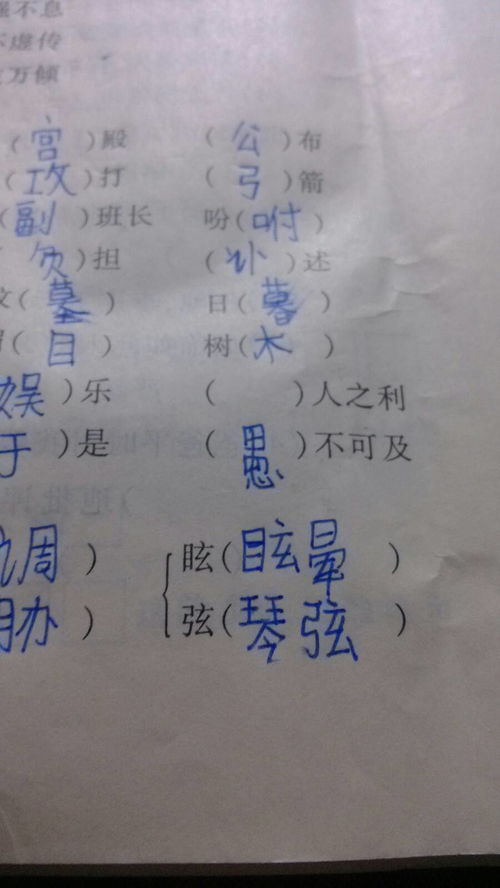 强不息
不虚传
万倾
(宫)殿 (公)布
(攻)打 (弓)箭
(副)班长 吩(咐)
(负)担 ( )述
(墓) 日(暮)
(目) 树(木)
娱)乐 ( )人之利
于)是 (愚)不可及
周) 眩(眩晕)
办) 弦(琴弦)